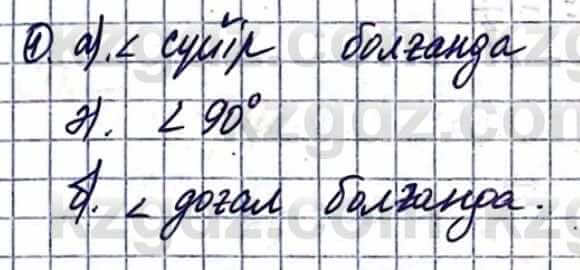 ①. а). ∠ сүйір болғанда
ә). ∠ 90°
б). ∠ доғал болғанда.